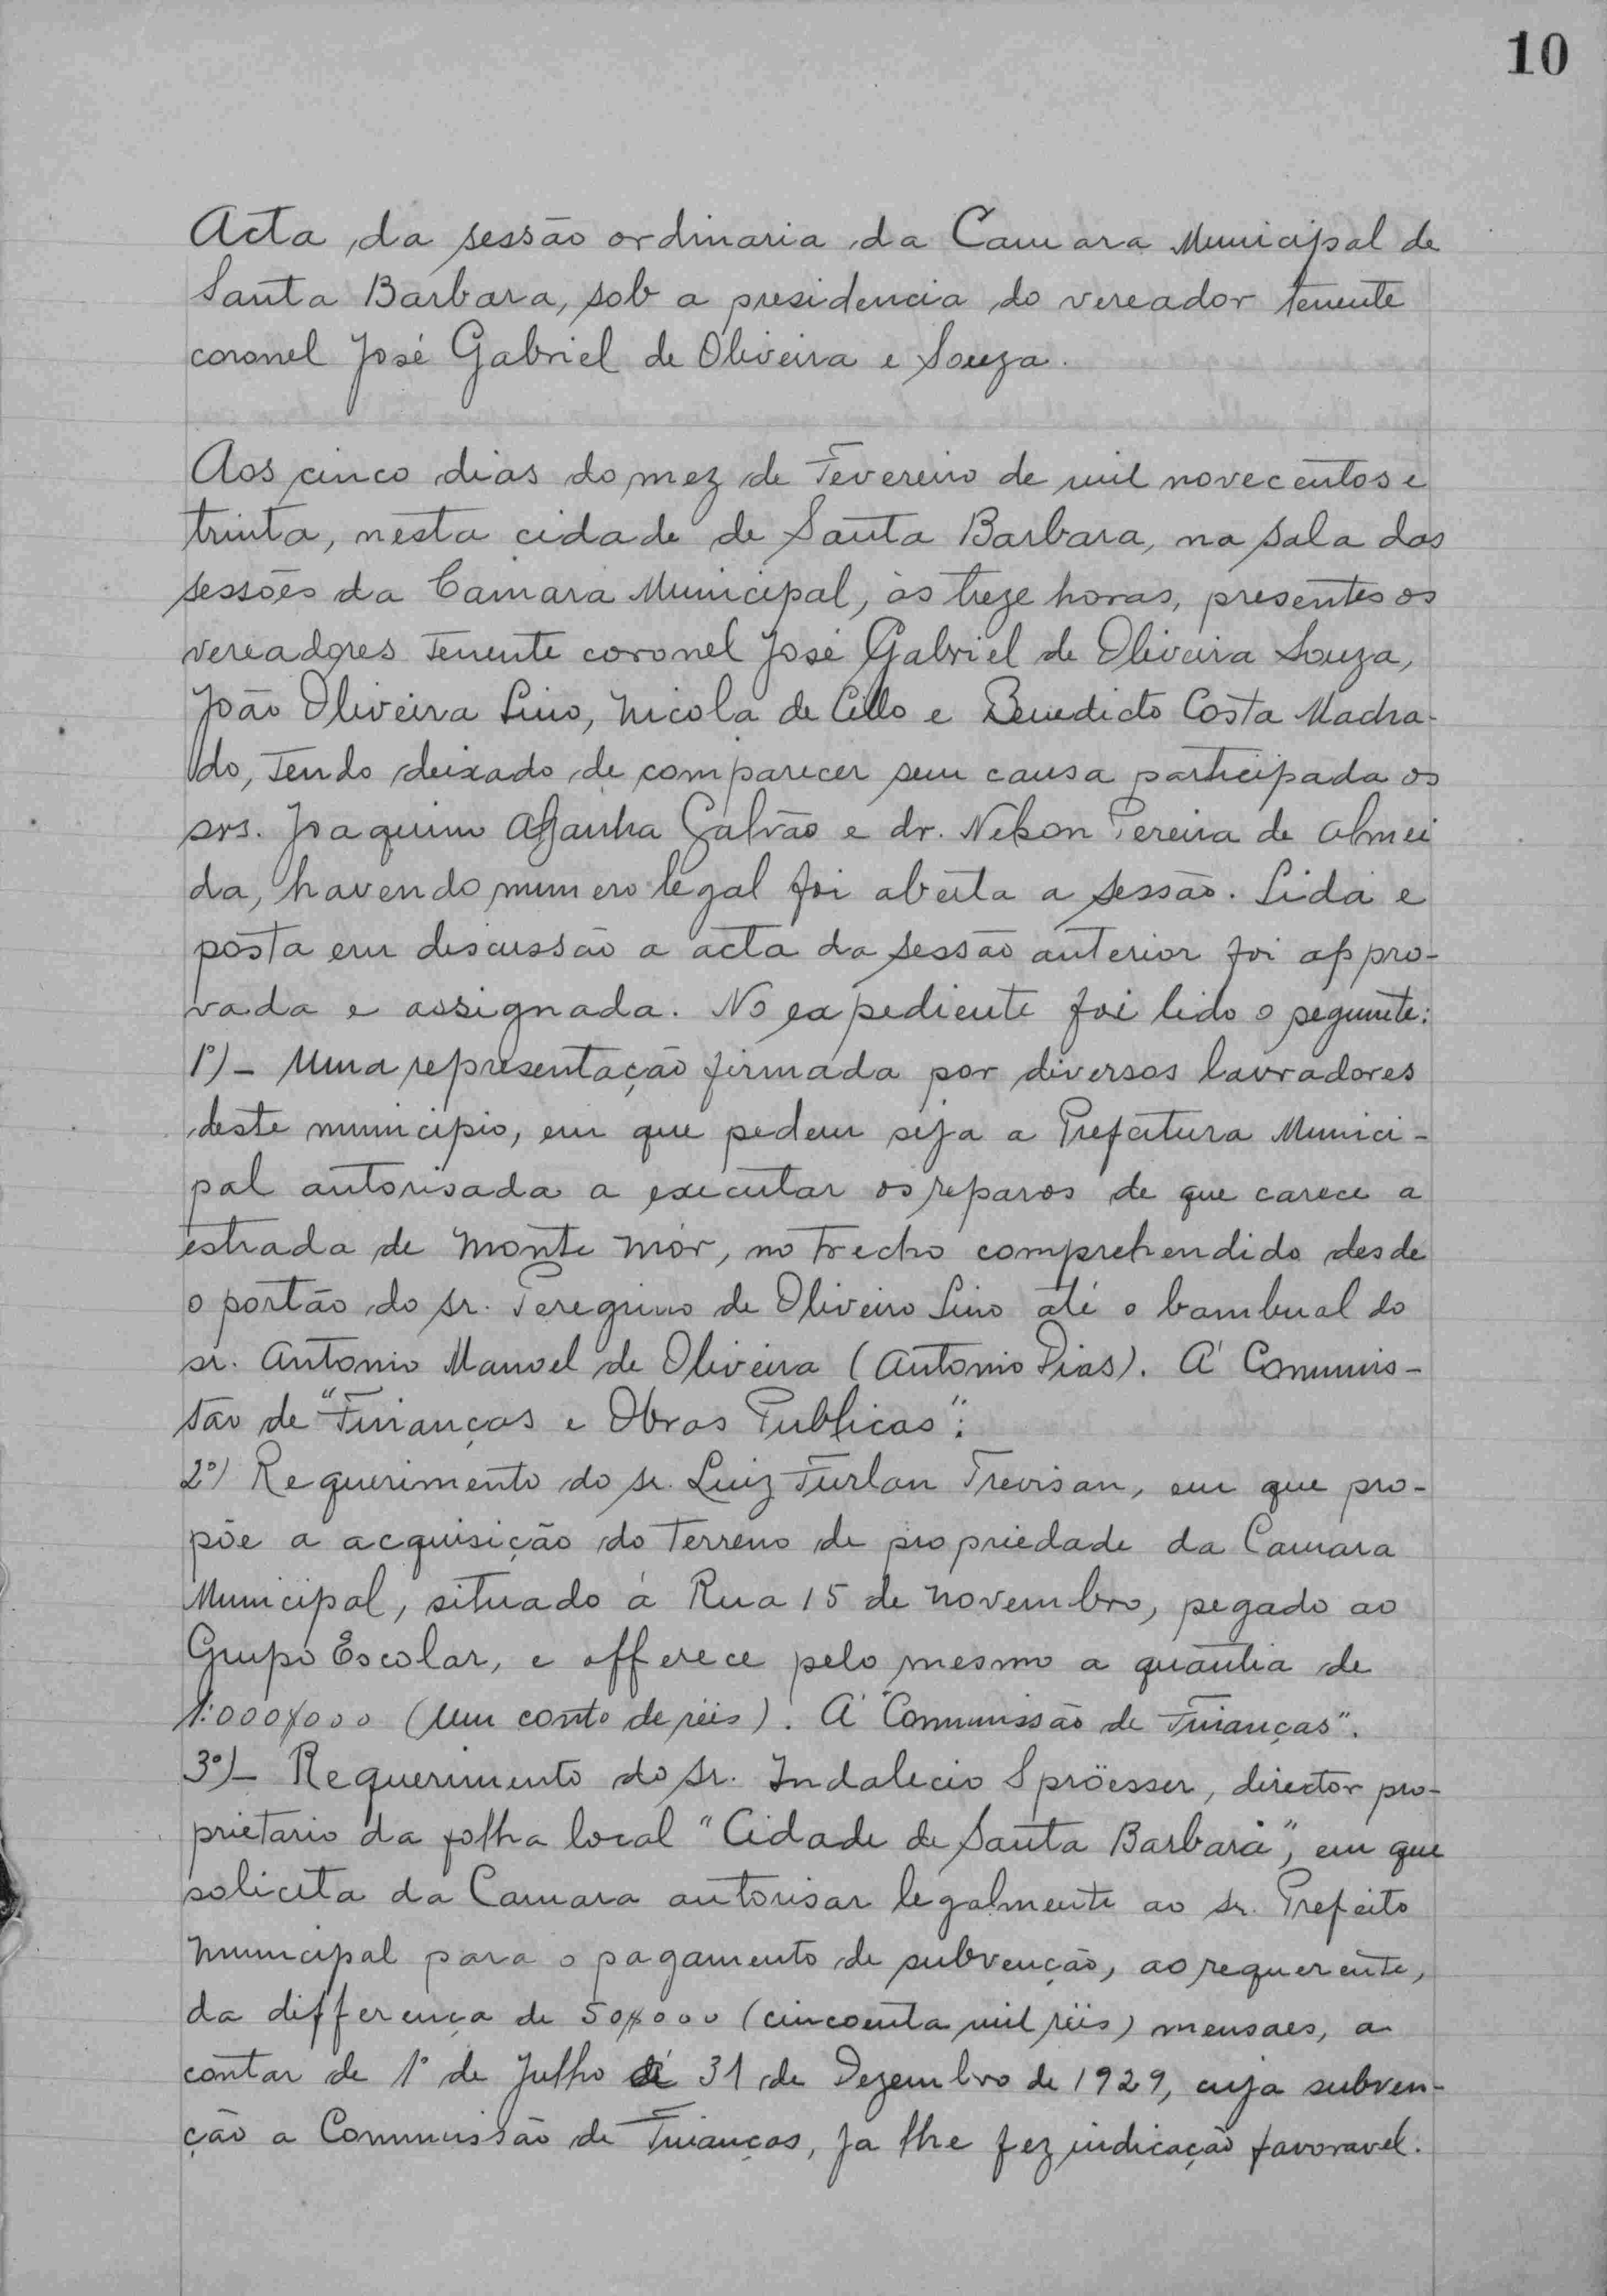 10
Acta da sessão ordinaria da Camara Municipal de
Santa Barbara, sob a presidencia do vereador tenente
coronel José Gabriel de Oliveira e Souza.
Aos cinco dias do mez de Fevereiro de mil novecentos e
trinta, nesta cidade de Santa Barbara, na sala das
sessões da Camara Municipal, ás treze horas, presentes os
vereadores Tenente coronel José Gabriel de Oliveira Souza,
João Oliveira Lino, Nicola de Cillo e Benedicto Costa Macha-
do, tendo deixado de comparecer sem causa participada os
srs. Joaquim Azanha Galvão e dr. Nelson Pereira de Almei
da, havendo numero legal foi aberta a sessão. Lida e
posta em discussão a acta da sessão anterior foi appro-
vada e assignada. No expediente foi lido o seguinte:
1º) - Uma representação firmada por diversos lavradores
deste municipio, em que pedem seja a Prefeitura Munici-
pal autorisada a executar os reparos de que carece a
estrada de Monte Mór, no trecho comprehendido desde
o portão do sr. Peregrino de Oliveira Lino até o bambual do
sr. Antonio Manoel de Oliveira (Antonio Dias). Á Commis-
são de "Finanças e Obras Publicas".
2º) Requerimento do sr. Luiz Furlan Trevisan, em que pro-
põe a acquisição do terreno de propriedade da Camara
Municipal, situado á Rua 15 de Novembro, pegado ao
Grupo Escolar, e offerece pelo mesmo a quantia de
1:000$000 (Um conto de réis). Á "Commissão de Finanças".
3º) - Requerimento do sr. Indalecio Spröesser, director pro-
prietario da folha local "Cidade de Santa Barbara", em que
solicita da Camara autorisar legalmente ao sr. Prefeito
Municipal para o pagamento de subvenção, ao requerente,
da differença de 50$000 (cincoenta mil réis) mensaes, a
contar de 1º de Julho á 31 de Dezembro de 1929, cuja subven-
ção a Commissão de Finanças, ja lhe fez indicação favoravel.